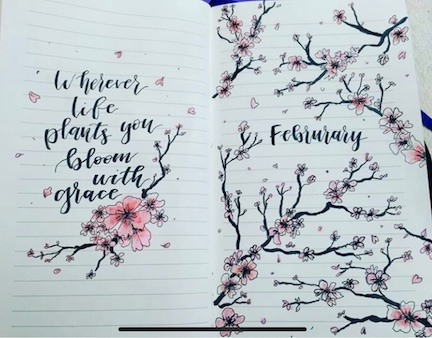 Wherever
life
plants you
bloom
with
grace
Februrary